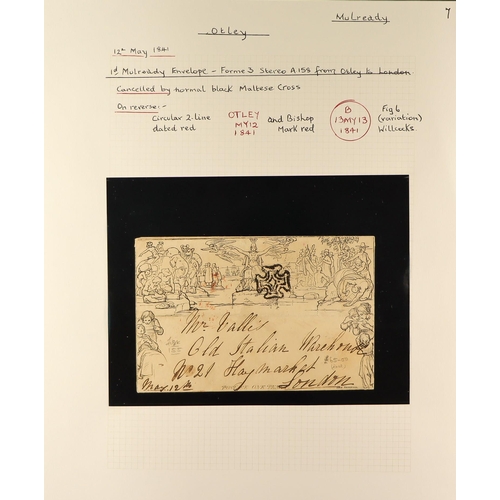 7
Mulready
Otley
12th May 1841
1d Mulready Envelope - Forme 3 Stereo A158 from Otley to London
Cancelled by normal black Maltese Cross
On reverse:-
Circular 2-line dated red
OTLEY
MY12
1841
and Bishop Mark red
B
13MY13
1841
Fig 6
(variation)
Willcocks
Mr Vallis
Old Italian Warehouse
No 21 Haymarket
London
May 12th